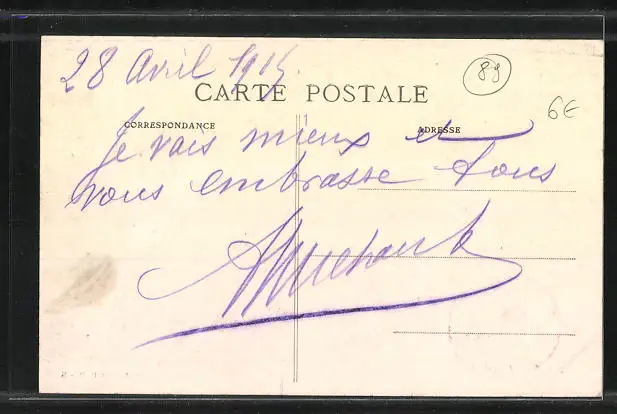 28 Avril 1915.
89
CARTE POSTALE
6€
CORRESPONDANCE
ADRESSE
Je vais mieux et
vous embrasse tous